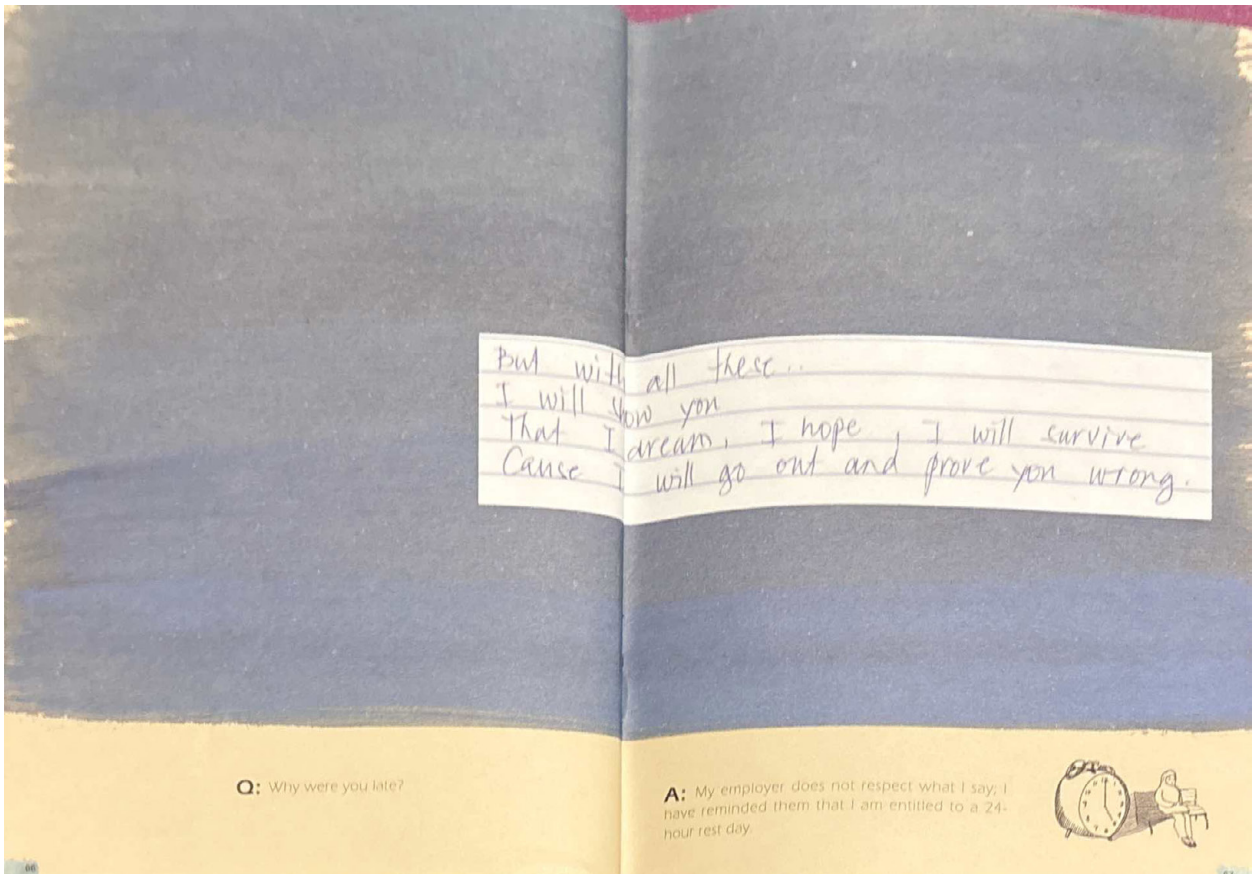 But with all these..
I will show you
That I dream, I hope, I will survive
Cause I will go out and prove you wrong.
Q: Why were you late?
A: My employer does not respect what I say; I
have reminded them that I am entitled to a 24-
hour rest day.
66